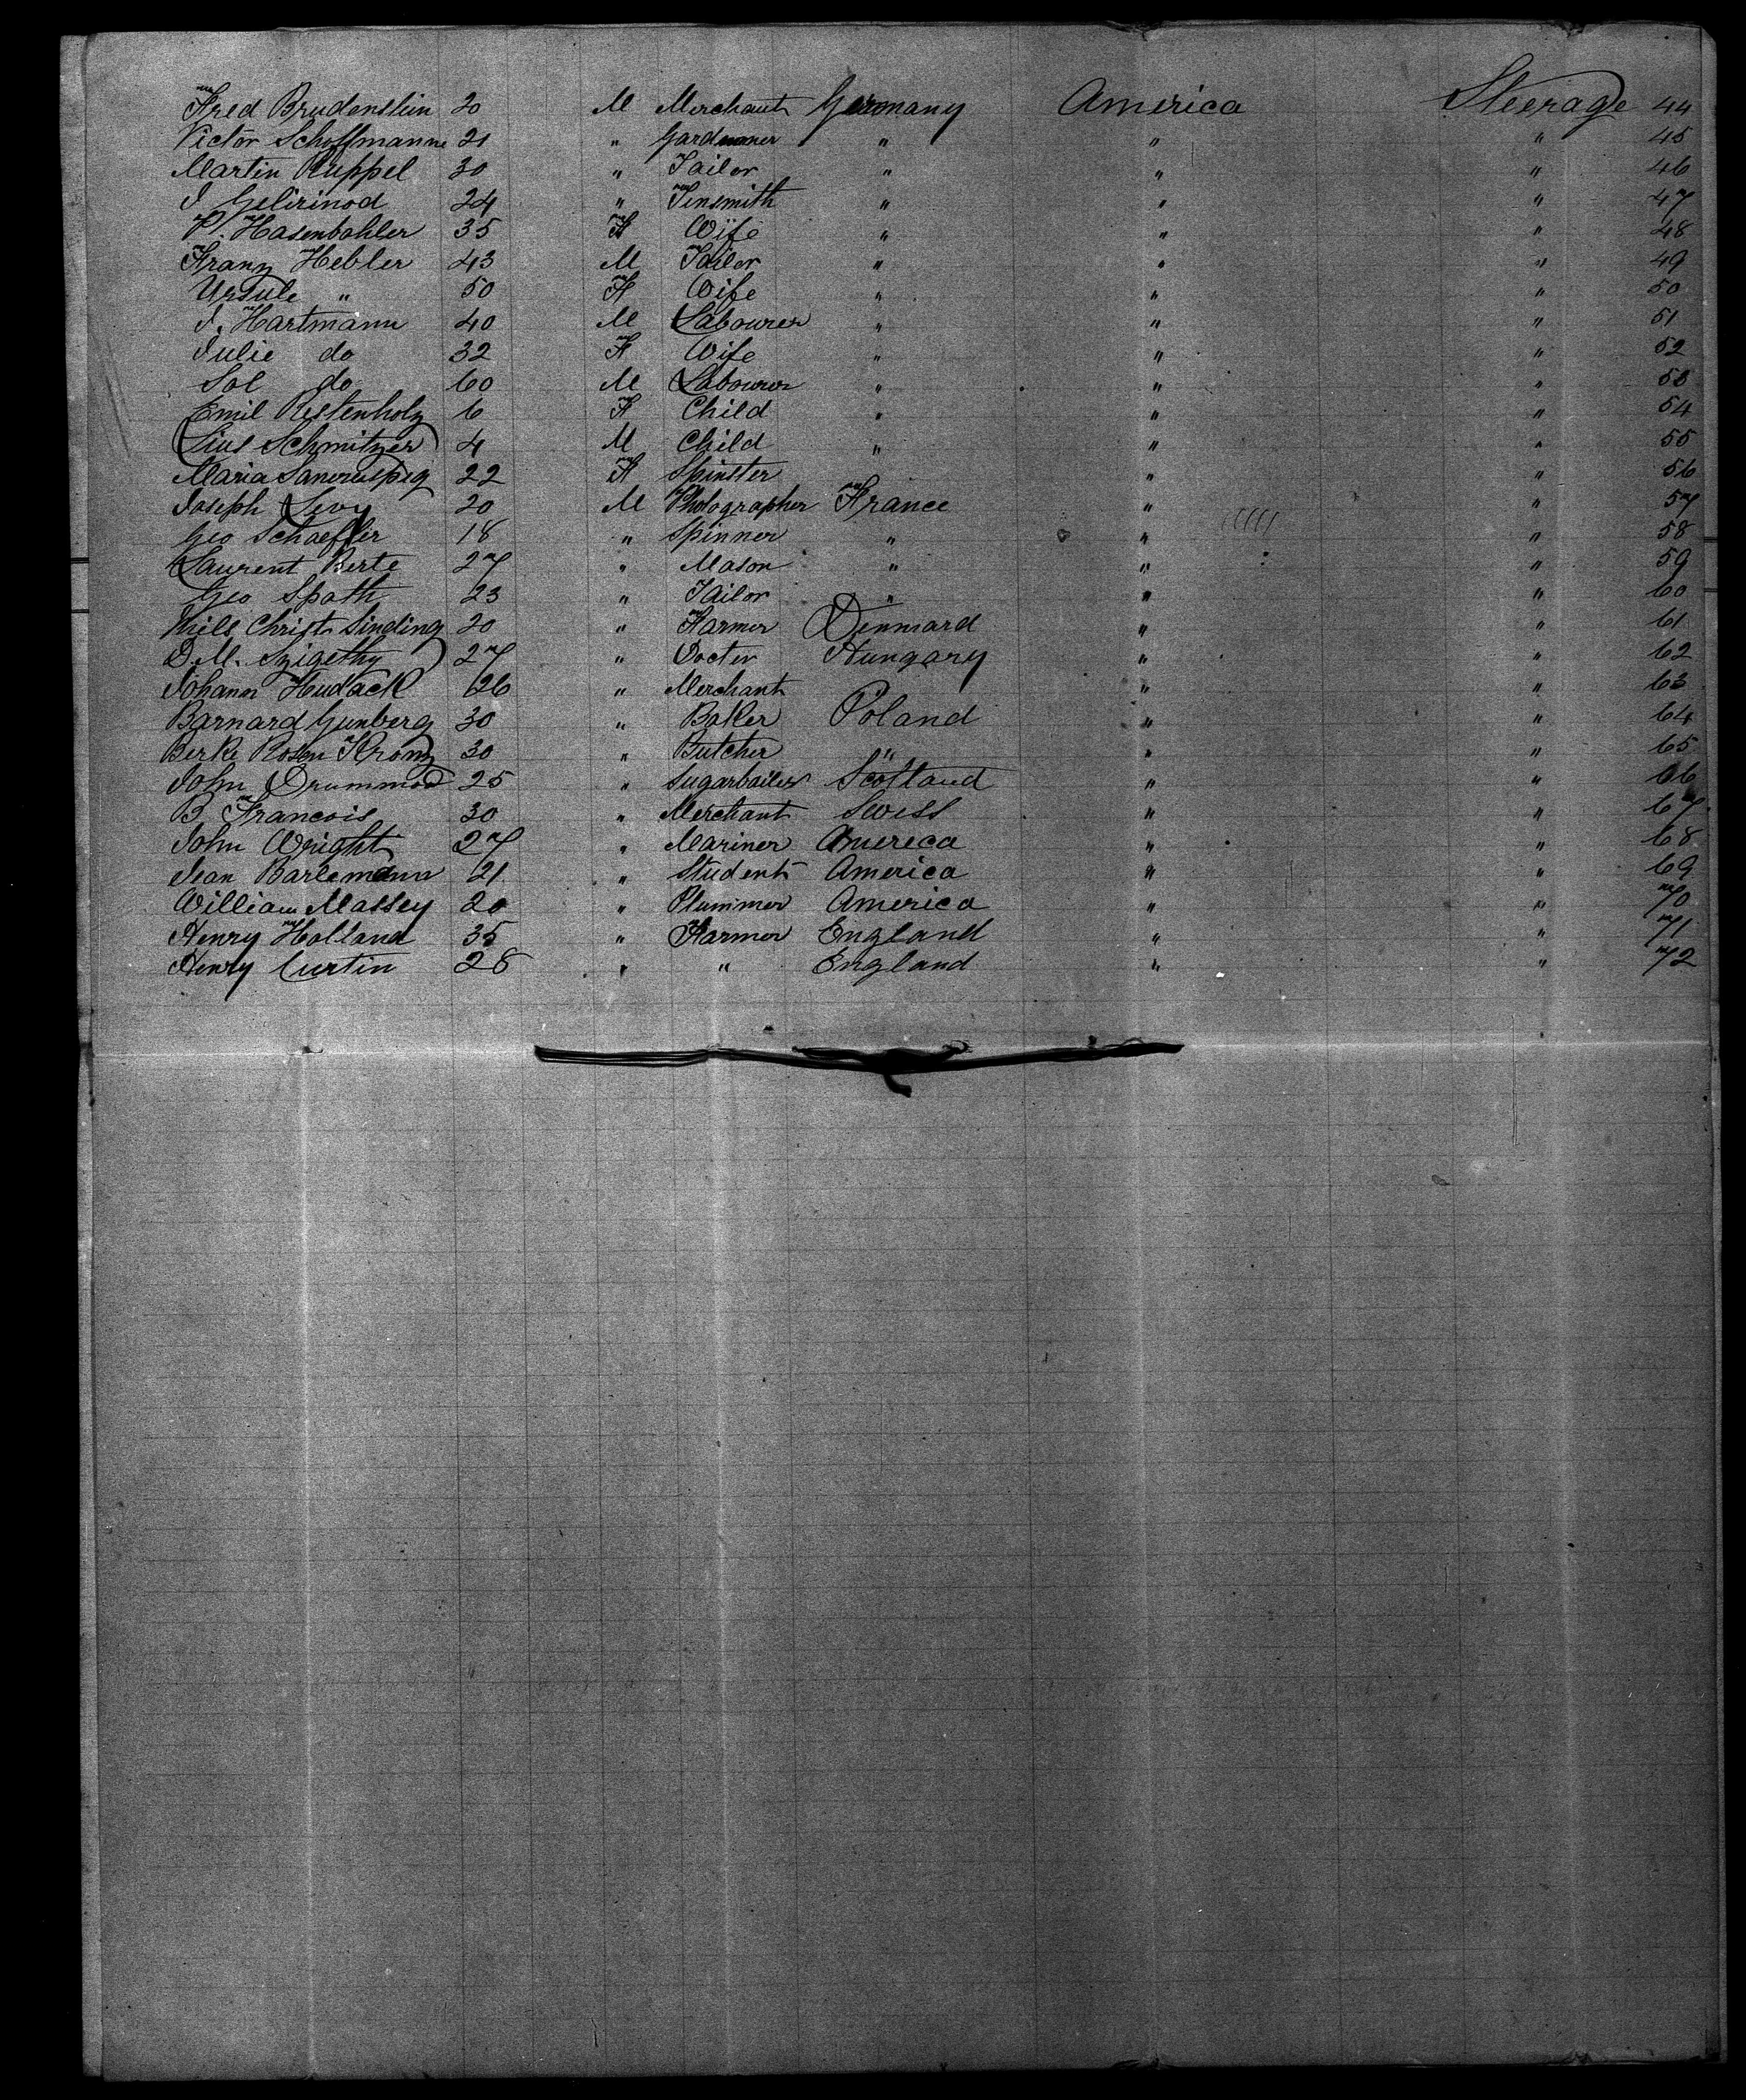 Fred Brudenstein 20 M Merchant Germany America Steerage 44
Victor Schoffmanne 21 " Gardnner " " " 45
Martin Ruppel 30 " Tailor " " " 46
J Gelirinod 24 " Tinsmith " " " 47
P. Hasenbohler 35 F Wife " " " 48
Franz Hebler 43 M Tailor " " " 49
Ursule " 50 F Wife " " " 50
J. Hartmann 40 M Labourer " " " 51
Julie do 32 F Wife " " " 52
Sol do 60 M Labourer " " " 53
Emil Restenholz 6 F Child " " " 54
Schmitzer 4 M Child " " " 55
Maria 22 F Spinster " " 56
Joseph Levy 20 M Photographer France " " 57
Geo Schaeffer 18 " Spinner " " " 58
Laurent Berte 27 " Mason " " " 59
Geo Spath 23 " Tailor " " " 60
Christ Sinding 20 " Farmer Denmard " " 61
D.M. Szigethy 27 " Docter Hungary " " 62
Johann Hudack 26 " Merchant " " 63
Barnard Gunberg 30 " Baker Poland " " 64
Berke Rosen Kranz 30 " Butcher " " " 65
John Drummod 25 " Sugarboiler Scotland " " 66
B Francois 30 " Merchant Swiss " " 67
John Wright 27 " Mariner America " " 68
Jean Barlemann 21 " Student America " " 69
William Massey 20 " Plummer America " " 70
Henry Holland 35 " Farmer England " " 71
Henry Curtin 28 " " England " " 72